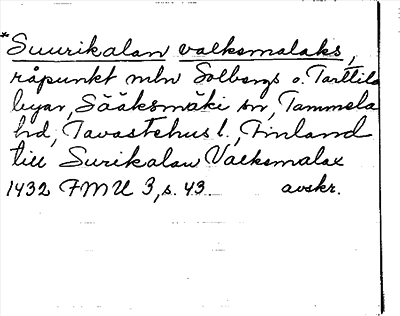 *Suurikalan valksmalaks,
råpunkt mln Solbergs o. Tarttila
byar, Sääksmäki sn, Tammela
hd, Tavastehus l., Finland
till Surikalan Valksmalax
1432 FMU 3, s. 43. avskr.